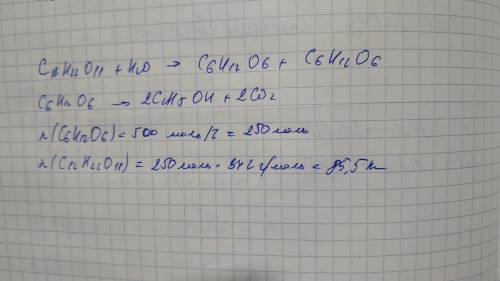 C12H22O11 + H2O → C6H12O6 + C6H12O6
C6H12O6 → 2C2H5OH + 2CO2
n(C6H12O6) = 500 моль/2 = 250 моль
n(C12H22O11) = 250 моль · 342 г/моль = 85,5 кг